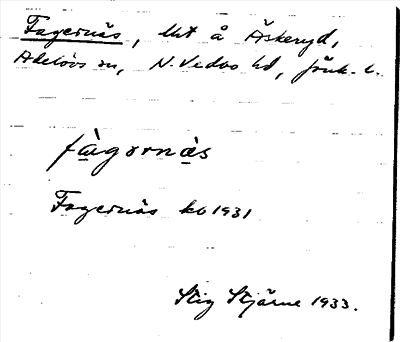 Fagernäs, lht å Äskeryd,
Adelövs sn, N. Vedbo hd, Jönk. l.
fàgərnä̀s
Fagernäs kb 1931
Stig Stjärne 1933.